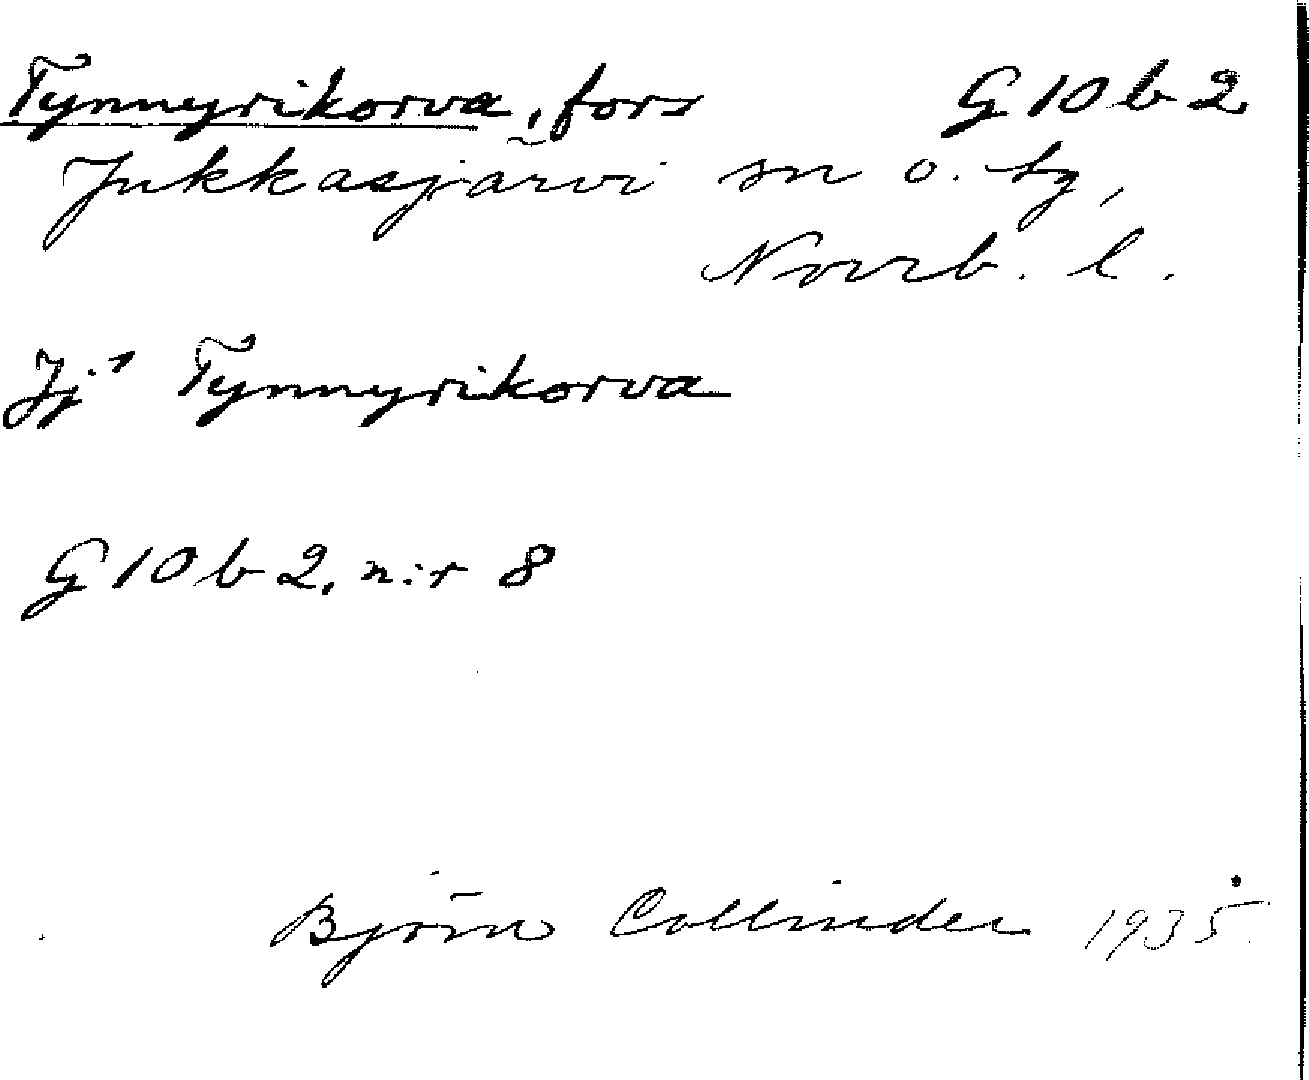 Tynnyrikorva, fors G 10 b 2
Jukkasjärvi sn o. tg,
Norrb. l.
Jj Tynnyrikorva
G 10 b 2, n:r 8
Björn Collinder 1935.